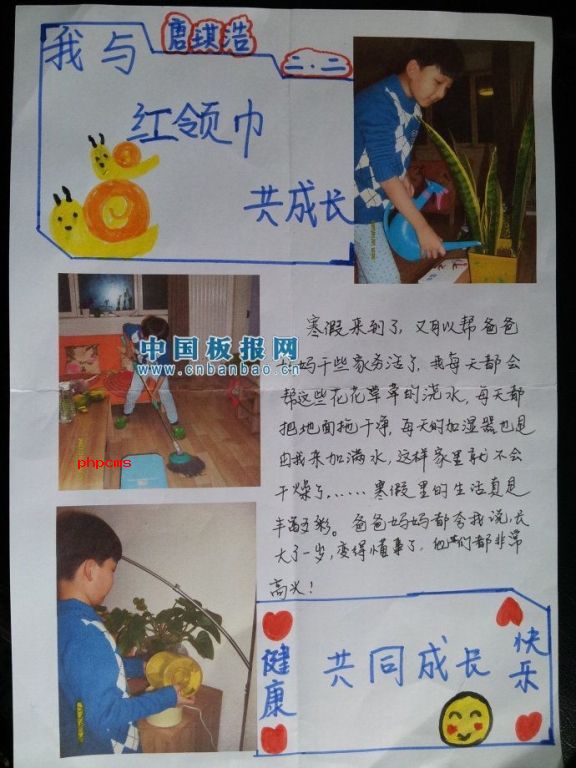 我与
唐琪浩
二.二
红领巾
共成长
寒假来到了，又可以帮爸爸
妈干些家务活了，我每天都会
帮这些花花草草的浇水，每天都
把地面拖干净，每天的加湿器也是
由我来加满水，这样家里就不会
干燥了……寒假里的生活真是
丰富多彩。爸爸妈妈都夸我说，长
大了一岁，变得懂事了，他们都非常
高兴！
中国板报网
www.cnbanbao.cn
phpcms
健康
共同成长
快乐